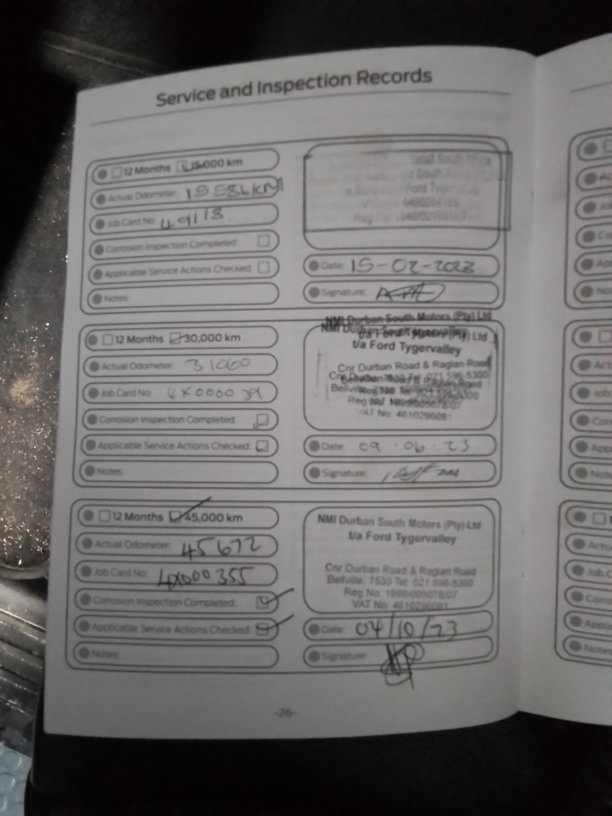 Service and Inspection Records
12 Months 15,000 km
Actual Odometer: 15586KM
Job Card No: 49113.
Corrosion Inspection Completed:
Applicable Service Actions Checked:
Notes:
South Africa
Ford Tygervalley
Reg
Date: 15-02-2023
Signature:
12 Months 30,000 km
Actual Odometer: 31060
Job Card No: 4X000039
Corrosion Inspection Completed
Applicable Service Actions Checked:
Notes:
NMI Durban South Motors (Pty) Ltd
t/a Ford Tygervalley
Cnr Durban Road & Raglan Road
VAT No: 4610296081
Date: 09-06-23
Signature:
12 Months 45,000 km
Actual Odometer: 45672
Job Card No: 4X000355
Corrosion Inspection Completed:
Applicable Service Actions Checked:
Notes:
NMI Durban South Motors (Pty) Ltd
t/a Ford Tygervalley
Cnr Durban Road & Raglan Road
Bellville, 7530 Tel: 021 596-5300
Reg No: 1999/005078/07
VAT No: 4610296081
Date: 04/10/23
Signature:
-26-